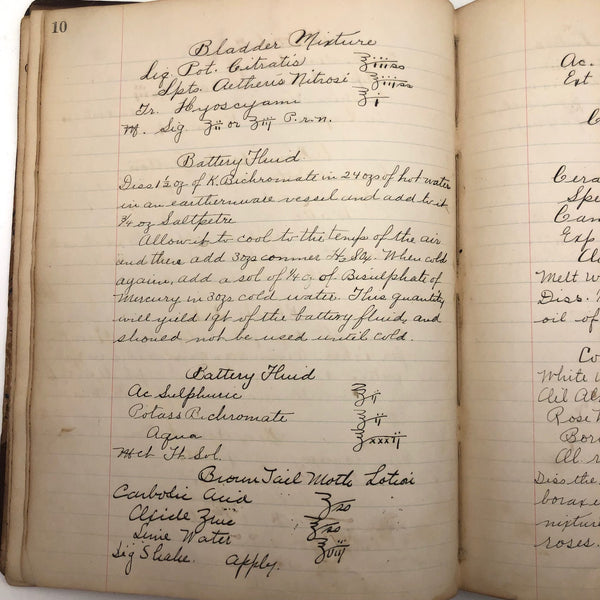 10
Bladder Mixture
Liq. Pot. Citratis ℥iiiss
Spts. Aetheris Nitrosi ℥iiiss
Tr. Hyoscyami ℥i
M. Sig ʒii or ʒiij P.r.n.
Battery Fluid.
Diss 1½ oz of K. Bichromate in 24 ozs of hot water
in an earthernware vessel and add to it
¾ oz Saltpetre
Allow it to cool to the temp of the air
and then add 3 ozs commer H₂SO₄. When cold
again, add a sol of ¼ oz of Bisulphate of
Mercury in 3 ozs cold water. This quantity
will yield 1 qt of the battery fluid, and
should not be used until cold.
Battery Fluid
Ac Sulphuric ℥ii
Potass Bichromate ℥ii
Aqua ℥xxxij
Ft. Sol.
Brown Tail Moth Lotion
Carbolic Acid ℥ss
Oxide Zinc ℥ss
Lime Water ℥viij
Sig Shake. Apply.
Ac.
Ext
C
Cera
Spe
Cam
Exp
Melt W
Diss.
oil of
Co
White W
Oil Al
Rose W
Bor
Ol. r
Diss the
borax
mixture
roses.